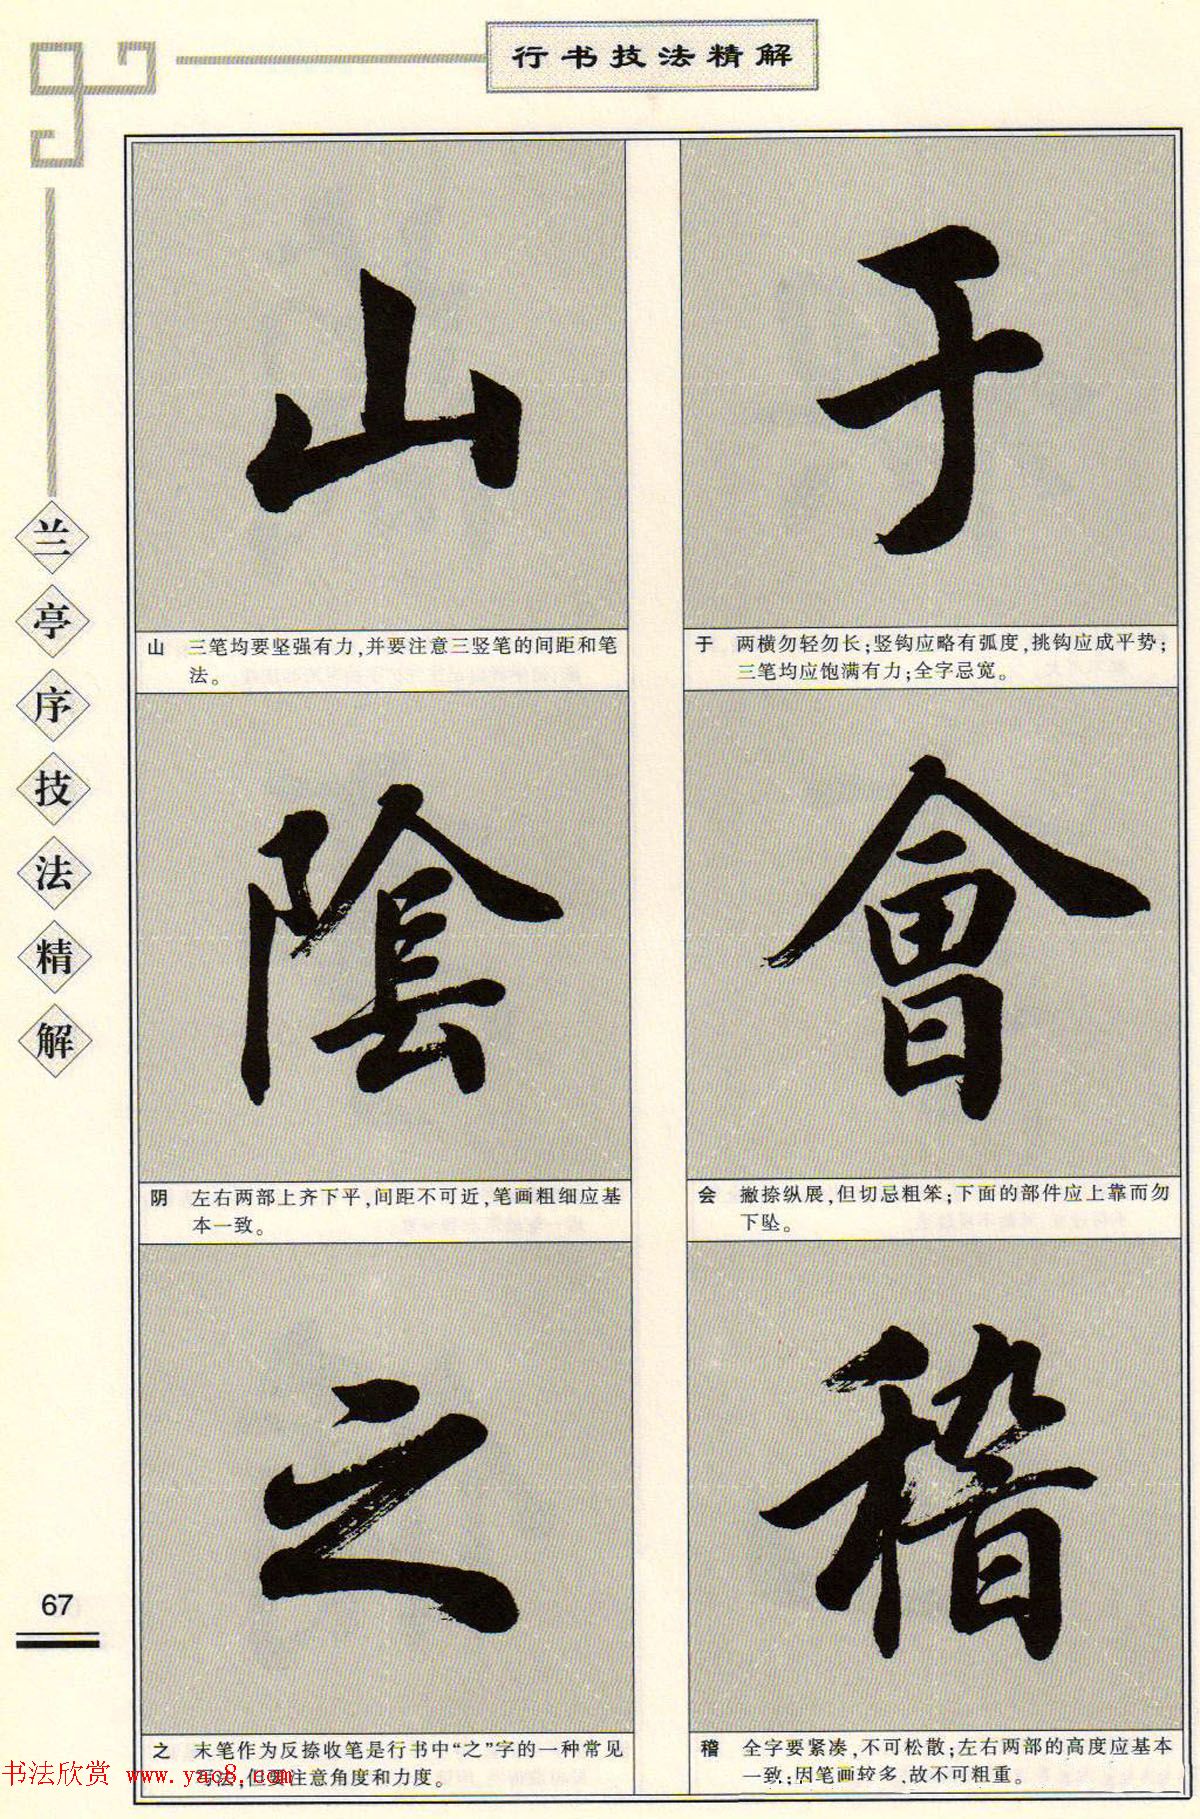 行书技法精解
兰亭序技法精解
于
于 两横勿轻勿长;竖钩应略有弧度,挑钩应成平势;
三笔均应饱满有力;全字忌宽。
會
会 撇捺纵展,但切忌粗笨;下面的部件应上靠而勿
下坠。
稽
稽 全字要紧凑,不可松散;左右两部的高度应基本
一致;因笔画较多,故不可粗重。
山
山 三笔均要坚强有力,并要注意三竖笔的间距和笔
法。
陰
阴 左右两部上齐下平,间距不可近,笔画粗细应基
本一致。
之
之 末笔作为反捺收笔是行书中“之”字的一种常见
写法,但要注意角度和力度。
67
书法欣赏 www.yac8.com